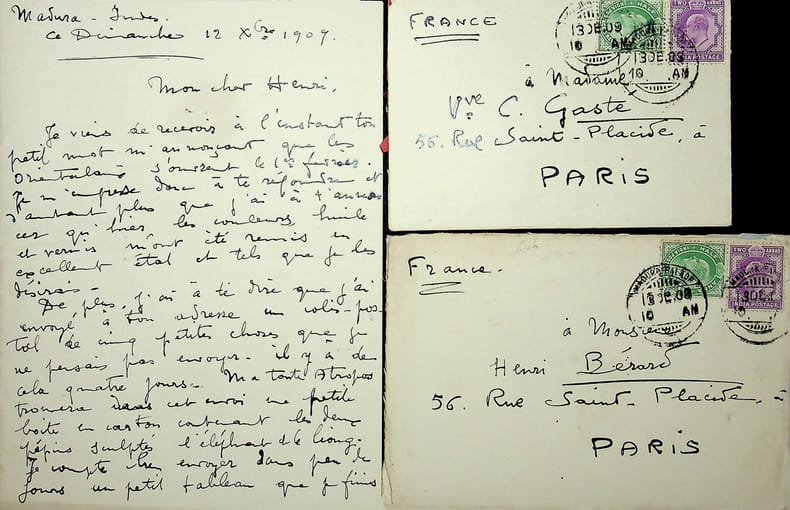 Madura - Indes.
Ce Dimanche 12 Xbre 1909.
Mon cher Henri,
Je viens de recevoir à l'instant ton
petit mot m'annonçant que les
Orientalistes s'ouvrent le 1er février.
Je m'empresse donc à te répondre et
d'autant plus que j'ai à t'annon
cer qu'hier, les couleurs huile
et vernis m'ont été remis en
excellent état et tels que je les
désirais -
De plus, j'ai à te dire que j'ai
envoyé à ton adresse un colis-pos-
tal de cinq petites choses que je
ne pensais pas envoyer - il y a de
cela quatre jours - Ma tante Atropos
trouvera dans cet envoi une petite
boîte en carton contenant les deux
pépins sculptés l'éléphant & le lion -
Je compte envoyer dans peu de
jours un petit tableau que je finis
FRANCE
13 DE 09
10 AM
HALF
TWO ANNAS
INDIA POSTAGE
13 DE 09
10 AM
à Madame
Vve C. Gaste
56. Rue Saint-Placide, à
PARIS
France.
HALF
TWO ANNAS
INDIA POSTAGE
13 DE 09
10 AM
à Monsieur
Henri Bérard
56. Rue Saint-Placide, à
PARIS